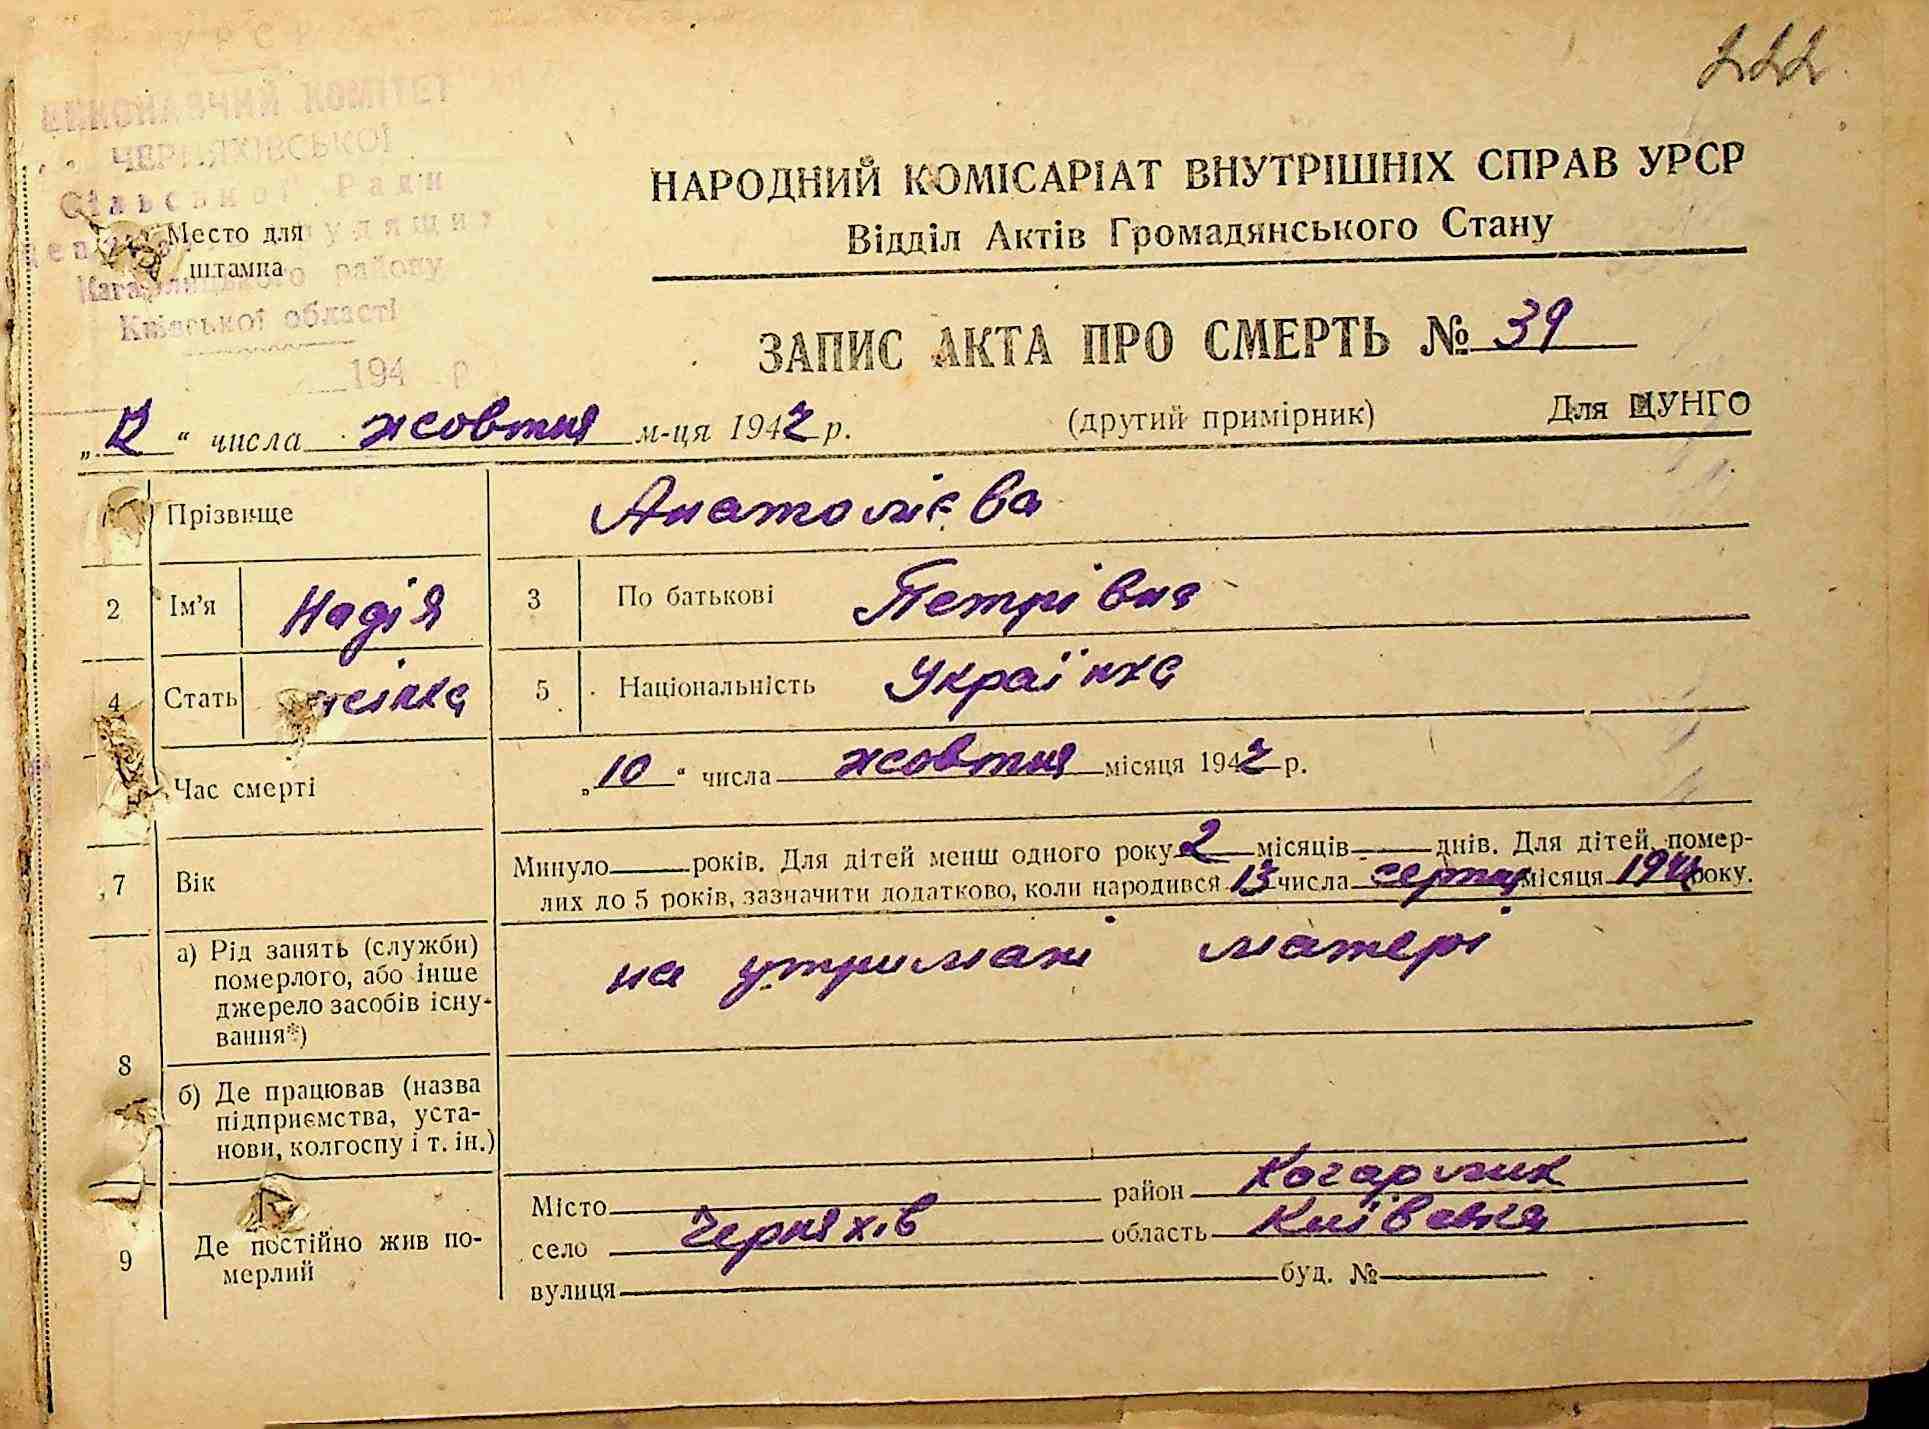 222
УРСР
ВИКОНАВЧИЙ КОМІТЕТ
ЧЕРНЯХІВСЬКОЇ
Сільської Ради
Место для
штампа
Кагарлицького району
Київської області
194 р
НАРОДНИЙ КОМІСАРІАТ ВНУТРІШНІХ СПРАВ УРСР
Відділ Актів Громадянського Стану
ЗАПИС АКТА ПРО СМЕРТЬ № 39
„12“ числа жовтня м-ця 1942 р. (другий примірник) Для ЦУНГО
Прізвище Анатолієва
2 Ім’я Надія 3 По батькові Петрівна
4 Стать жінка 5 Національність Українка
Час смерті „10“ числа жовтня місяця 1942 р.
7 Вік Минуло року. Для дітей менш одного року 2 місяців днів. Для дітей, помер-
лих до 5 років, зазначити додатково, коли народився 13 числа серпня місяця 194 року.
8 а) Рід занять (служби)
померлого, або інше
джерело засобів існу-
вання*)
на утримані матері
б) Де працював (назва
підприємства, уста-
нови, колгоспу і т. ін.)
9 Де постійно жив по-
мерлий
Місто район Кагарлик
село Черняхів область Київська
вулиця буд. №